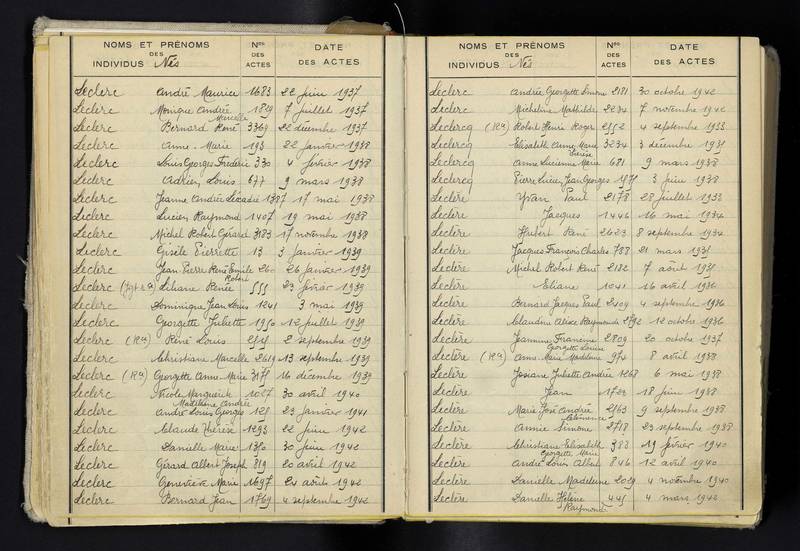 NOMS ET PRÉNOMS
DES
INDIVIDUS Nés
Nos
DES
ACTES
DATE
DES ACTES
Leclerc André Maurice 1683 22 juin 1937
Leclerc Monique Andrée 1829 7 juillet 1937
Marcelle
Leclerc Bernard René 3369 22 décembre 1937
Leclerc Anne-Marie 193 22 janvier 1938
Leclerc Louis Georges Frédéric 330 4 février 1938
Leclerc Adrien Louis 677 9 mars 1938
Leclerc Jeanne Andrée Léocadie 1387 17 mai 1938
Leclerc Lucien Raymond 1407 19 mai 1938
Leclerc Michel Robert Gérard 3183 17 novembre 1938
Leclerc Gisèle Pierrette 13 3 janvier 1939
Leclerc Jean Pierre René Emile 260 26 janvier 1939
Robert
Leclerc Liliane Renée 555 23 février 1939
Leclerc Dominique Jean Louis 1241 3 mai 1939
Leclerc Georgette Juliette 1950 12 juillet 1939
Leclerc (Rn) René Louis 2 septembre 1939
Leclerc Christiane Marcelle 2619 13 septembre 1939
Leclerc (Rn) Georgette Anne-Marie 16 décembre 1939
Leclerc Nicole Marguerite 1027 30 avril 1940
Madeleine Andrée
Leclerc André Louis Georges 23 janvier 1941
Leclerc Claude Thérèse 1293 22 juin 1942
Leclerc Danielle Marie 1350 30 juin 1942
Leclerc Gérard Albert Joseph 819 20 avril 1942
Leclerc Geneviève Marie 1697 24 août 1942
Leclerc Bernard Jean 1769 4 septembre 1942
NOMS ET PRÉNOMS
DES
INDIVIDUS Nés
Nos
DES
ACTES
DATE
DES ACTES
Leclerc Andrée Georgette Simone 2181 30 octobre 1942
Leclerc Micheline Mathilde 2234 7 novembre 1942
Leclercq (Rn) Robert Henri Roger 2552 4 septembre 1933
Leclercq Elisabeth Anne-Marie 3234 3 décembre 1935
Thérèse
Leclercq Anne Lucienne Marie 681 9 mars 1938
Leclercq Pierre Lucien Jean Georges 3 juin 1938
Leclère Yvan Paul 2178 28 juillet 1933
Leclère Jacques 1446 16 mai 1934
Leclère Hubert René 2623 8 septembre 1934
Leclère Jacques François Charles 788 21 mars 1935
Leclère Michel Robert René 2182 7 août 1935
Leclère Eliane 1041 16 avril 1936
Leclère Bernard Jacques Paul 2409 4 septembre 1936
Leclère Claudine Alice Raymonde 2792 12 octobre 1936
Leclère Jeannine Francine 2809 20 octobre 1937
Georgette Louise
Leclère (Rn) Anne Marie Madeleine 974 8 avril 1938
Leclère Josiane Juliette Andrée 1268 6 mai 1938
Leclère Jean 1723 18 juin 1938
Leclère Marie José Andrée 2563 9 septembre 1938
Leclère Annie Simone 2718 23 septembre 1938
Leclère Christiane Elisabeth 383 19 février 1940
Georgette Marie
Leclère André Louis Albert 846 12 avril 1940
Leclère Danielle Madeleine 2029 4 novembre 1940
Leclère Danielle Hélène 445 4 mars 1942
Raymonde